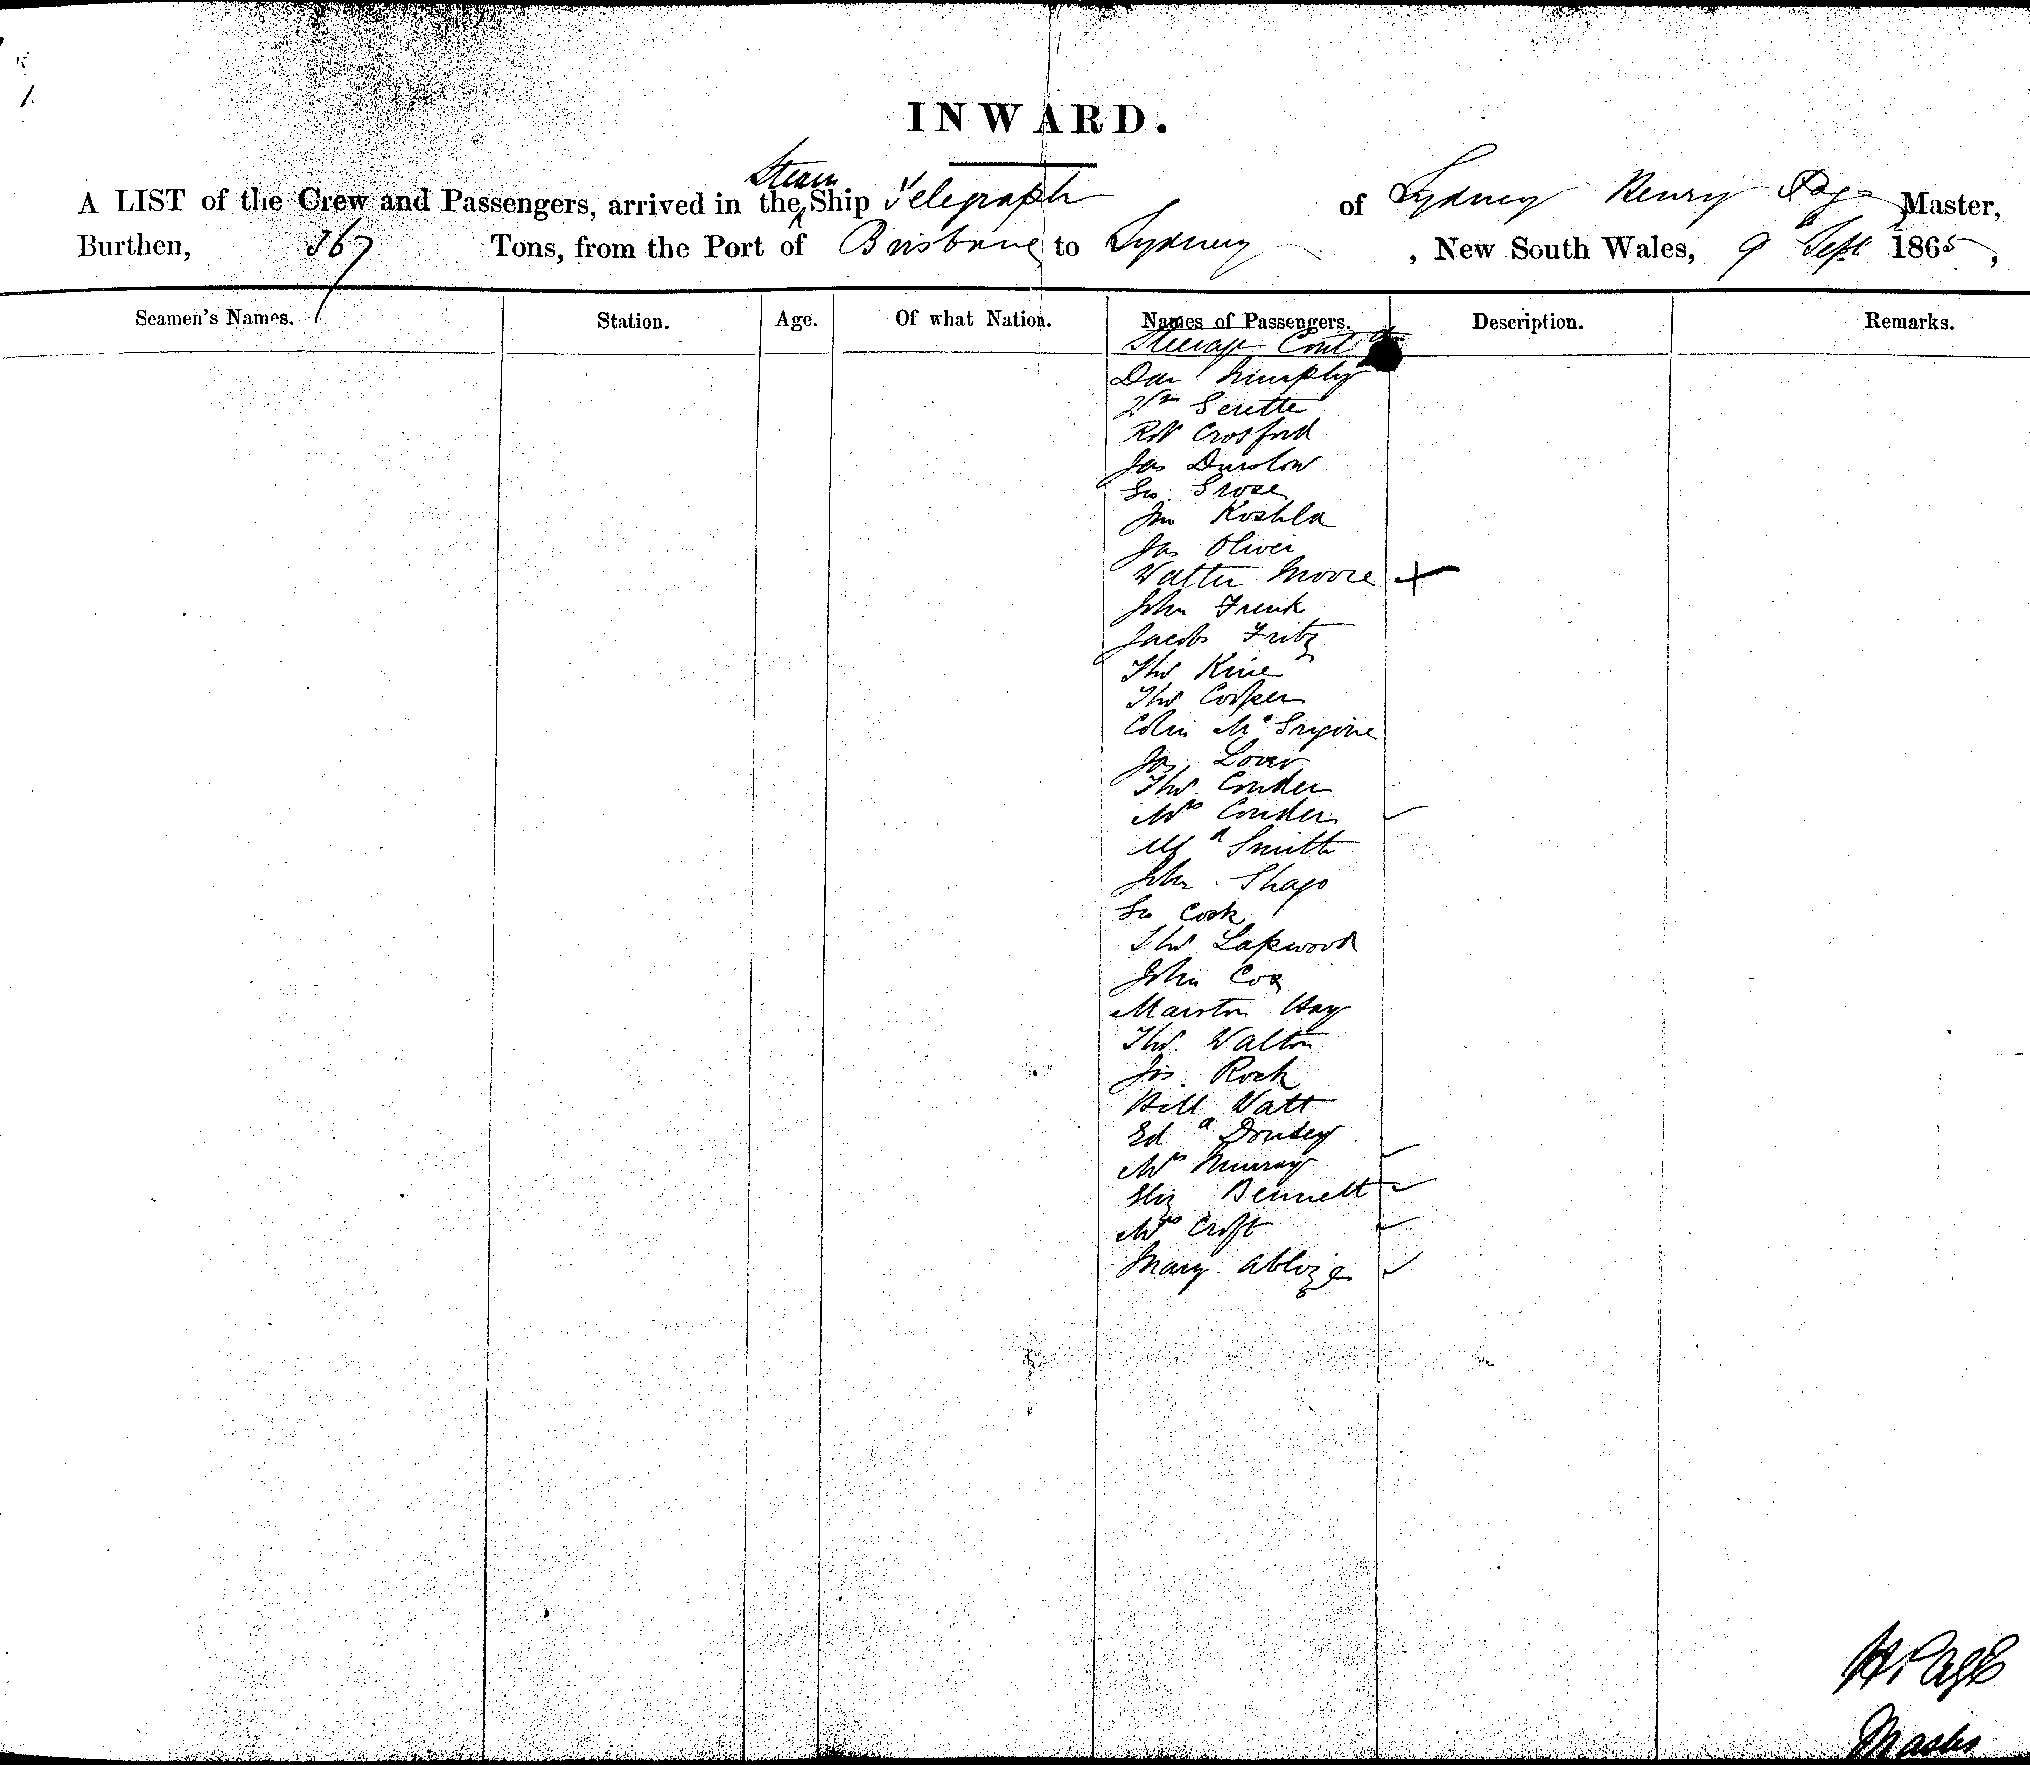 INWARD.
A LIST of the Crew and Passengers, arrived in the Steam Ship Telegraph of Sydney Henry Master,
Burthen, 367 Tons, from the Port of Brisbane to Sydney, New South Wales, 9 Sept 1865,
Seamen's Names. Station. Age. Of what Nation. Names of Passengers. Description. Remarks.
Steerage Contd
Dan Murphy
Wm
Robt Crosford
Jas Durslow
Geo Grose
Jno
Jas Oliver
Walter Moore
John Frenk
Jacob Fritz
Thos
Thos Cooper
Colin Mc
Jas
Thos Conder
Mrs Conder
Smith
John
Geo Cook
Thos Lakwood
John Cox
Hay
Thos Walton
Jos Rock
Bill Watt
Edd
Mrs Murray
Eliz Bennett
Mrs Croft
Mary
H Page
Master